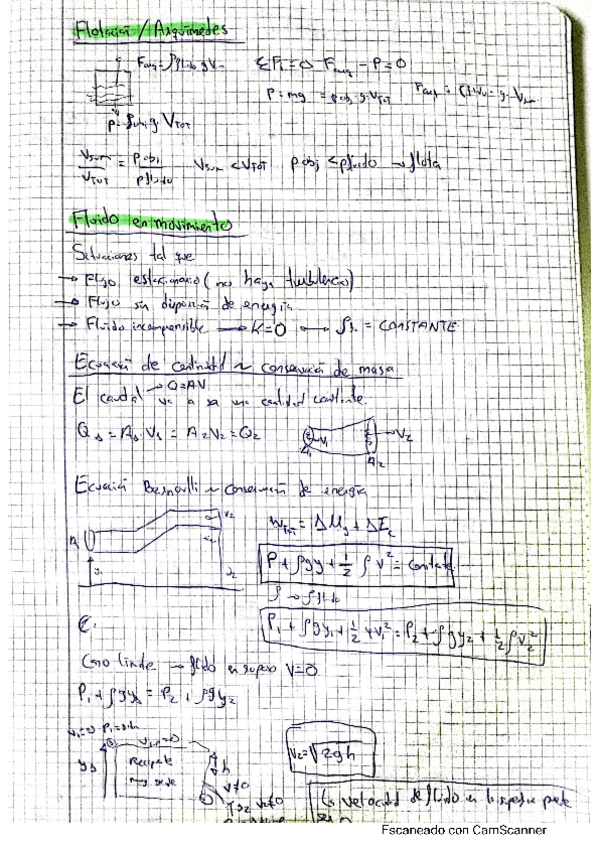 Flotación / Arquímedes
F_arq = ρ_fluido g V_sum
ΣF_i = 0 F_arq - P = 0
P = mg = ρ_obj · g · V_TOT
P = ρ_obj g · V_TOT
V_sum / V_TOT = ρ_obj / ρ_fluido V_sum < V_TOT ρ_obj < ρ_fluido → flota
Fluido en movimiento
Situaciones tal que
→ Flujo estacionario (no haya turbulencias)
→ Flujo sin de energía
→ Fluido incompresible → K=0 → = CONSTANTE
Ecuación de continuidad ~ conservación de masa
→ Q=AV
El caudal va a ser una cantidad constante.
Q_1 = A_1·V_1 = A_2V_2 = Q_2
V_1 V_2
A_1 A_2
Ecuación Bernoulli ~ Conservación de energía
W_TOT = ΔU_g + ΔE_c
P + ρgy + 1/2 ρv² = constante
ρ → ρ fluido
P_1 + ρgy_1 + 1/2 ρv_1² = P_2 + ρgy_2 + 1/2 ρv_2²
Caso límite → fluido en reposo V=0
P_1 + ρgy_1 = P_2 + ρgy_2
V_1=0 P_1=
y_1 Recipiente muy h V≠0
V_2=√2gh
La velocidad de fluido en la superficie puede
ser 0
Escaneado con CamScanner